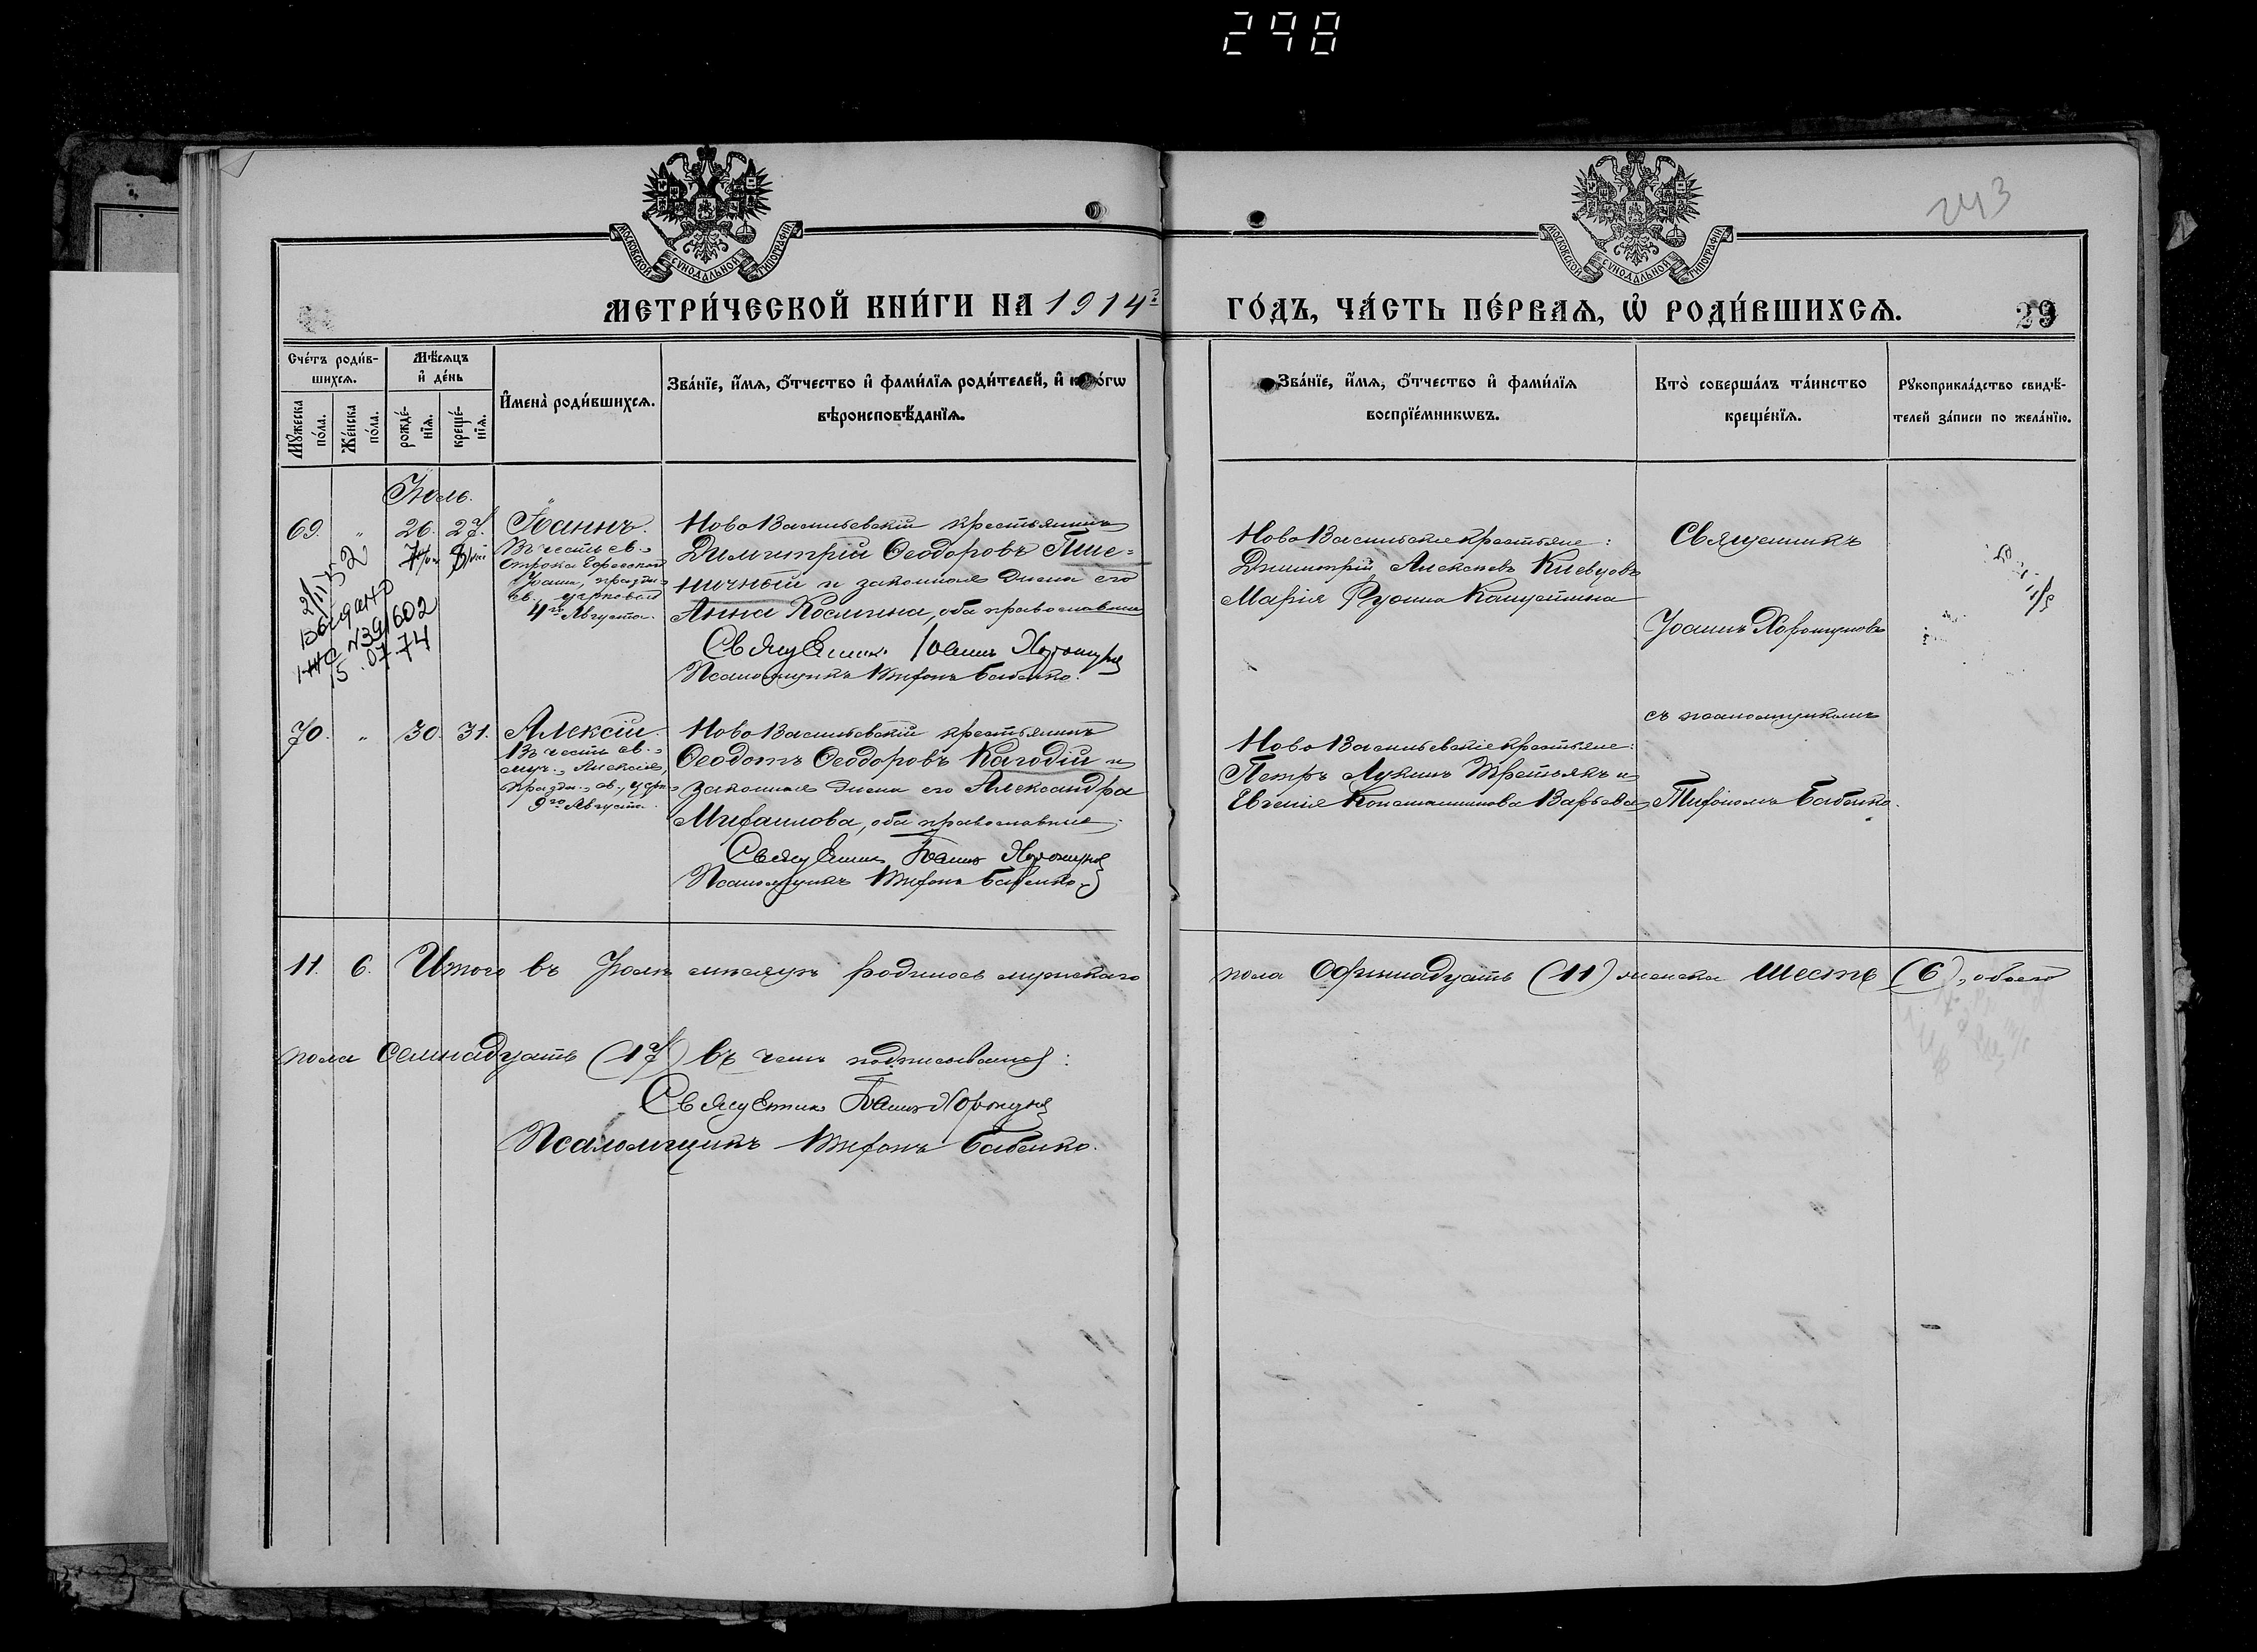 298
243
МОСКОВСКОЙ СѴНОДАЛЬНОЙ ТИПОГРАФІИ
МОСКОВСКОЙ СѴНОДАЛЬНОЙ ТИПОГРАФІИ
МЕТРИ́ЧЕСКОЙ КНИ́ГИ НА 1914 г
ГО́ДЪ, ЧА́СТЬ ПЕ́РВАѦ, Ѡ҆ РОДИ́ВШИХСѦ.
29
Сче́тъ роди́в-
шихсѧ.
Мꙋ́жеска по́ла.
Же́нска по́ла.
Мѣ́сѧцъ
и҆ де́нь
рожде́-нїѧ.
креще́-нїѧ.
И҆мена̀ роди́вшихсѧ.
Зва́нїе, и҆́мѧ, ѻ҆́тчество и҆ фами́лїѧ роди́телей, и҆ како́гѡ
вѣроисповѣ́данїѧ.
Зва́нїе, и҆́мѧ, ѻ҆́тчество и҆ фами́лїѧ
воспрїе́мникѡвъ.
Кто̀ соверша́лъ та́инство
креще́нїѧ.
Рꙋкоприкла́дство свидѣ́-
телей за́писи по жела́нїю.
Іюль.
69. " 26. 27.
Іоаннъ.
Въ честь св.
Іоанна, праздн.
св. церковью
4го Августа.
Ново Васильевскій крестьянинъ
Димитрій Ѳеодоровъ Пше=
ничный и законная жена его
Анна Космина, оба православные
Священникъ Іоаннъ Хорошунъ
Псаломщикъ Тифонъ Бабенко.
2/II 52
N 391602
15.07.74
Ново Васильевскіе крестьяне:
Димитрій Алексѣевъ Кіевцовъ
Марія
Священникъ
Іоаннъ Хорошуновъ
съ псаломщикомъ
Тифономъ Бабенко.
70. " 30. 31.
Алексій.
Въ честь св.
муч. Алексія,
праздн. св. церк.
9го Августа.
Ново Васильевскій крестьянинъ
Ѳеодотъ Ѳеодоровъ Кагодій и
законная жена его Александра
Михаилова, оба православные.
Священникъ Іоаннъ Хорошунъ
Псаломщикъ Тифонъ Бабенко
Ново Васильевскіе крестьяне:
Петръ Лукинъ Третьякъ и
Евгенія Константинова
11. 6. Итого въ Іюлѣ мѣсяцѣ родилось мужскаго
пола Одиннадцать (11) женска Шесть (6), обоего
пола Семнадцать (17) въ чемъ подписываемся:
Священникъ Іоаннъ Хорошунъ
Псаломщикъ Тифонъ Бабенко.